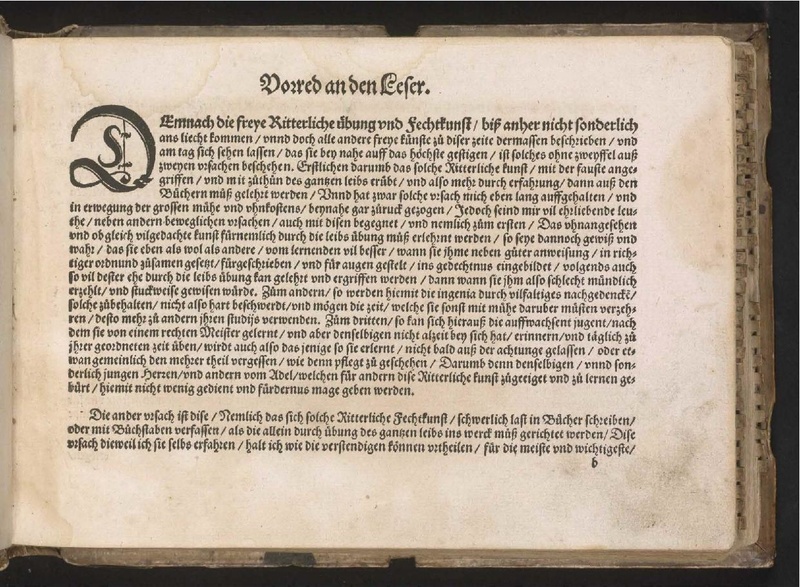 Vorred an den Leser.
DEmnach die freye Ritterliche übung vnd Fechtkunst / biß anher nicht sonderlich
ans liecht kommen / vnnd doch alle andere freye künste zů diser zeite dermassen beschrieben / vnd
am tag sich sehen lassen / das sie bey nahe auff das höchste gestigen / ist solches ohne zweyffel auß
zweyen vrsachen beschehen. Erstlichen darumb das solche Ritterliche kunst / mit der fauste ange-
griffen / vnd mit zůthůn des gantzen leibs erübt / vnd also mehr durch erfahrung / dann auß den
Büchern můß gelehrt werden / Vnnd hat zwar solche vrsach mich eben lang auffgehalten / vnd
in erwegung der grossen mühe vnd vhnkostens / beynahe gar zůruck gezogen / Jedoch seind mir vil ehrliebende leu-
the / neben andern beweglichen vrsachen / auch mit disen begegnet / vnd nemlich zům ersten / Das vhnangesehen
vnd ob gleich vilgedachte kunst fürnemlich durch die leibs übung můß erlehrnt werden / so seye dannoch gewiß vnd
wahr / das sie eben als wol als andere / vom lernenden vil besser / wann sie jhme neben gůter anweisung / in rich-
tiger ordnund zůsamen gesetzt / fürgeschrieben / vnd für augen gestelt / ins gedechtnus eingebildet / volgends auch
so vil dester ehe durch die leibs übung kan gelehrt vnd ergriffen werden / dann wann sie jhm also schlecht mündlich
erzehlt / vnd stuckweise gewisen würde. Zům andern / so werden hiemit die ingenia durch vilfaltiges nachgedenckẽ /
solche zůbehalten / nicht also hart beschwerdt / vnd mögen die zeit / welche sie sonst mit mühe daruber müsten verzeh-
ren / desto mehr zů andern jhren studijs verwenden. Zům dritten / so kan sich hierauß die auffwachsent jugent / nach
dem sie von einem rechten Meister gelernt / vnd aber denselbigen nicht alzeit bey sich hat / erinnern / vnd täglich zů
jhrer geordneten zeit üben / wirdt auch also das jenige so sie erlernt / nicht bald auß der achtunge gelassen / oder et-
wan gemeinlich den mehrer theil vergessen / wie denn pflegt zů geschehen / Darumb denn denselbigen / vnnd son-
derlich jungen Herren / vnd andern vom Adel / welchen für andern dise Ritterliche kunst zůgeeiget vnd zů lernen ge-
bürt / hiemit nicht wenig gedient vnd fürdernus mage geben werden.
Die ander vrsach ist dise / Nemlich das sich solche Ritterliche Fechtkunst / schwerlich last in Bücher schreiben /
oder mit Bůchstaben verfassen / als die allein durch übung des gantzen leibs ins werck můß gerichtet werden / Dise
vrsach dieweil ich sie selbs erfahren / halt ich wie die verstendigen können vrtheilen / für die meiste vnd wichtigeste /
b